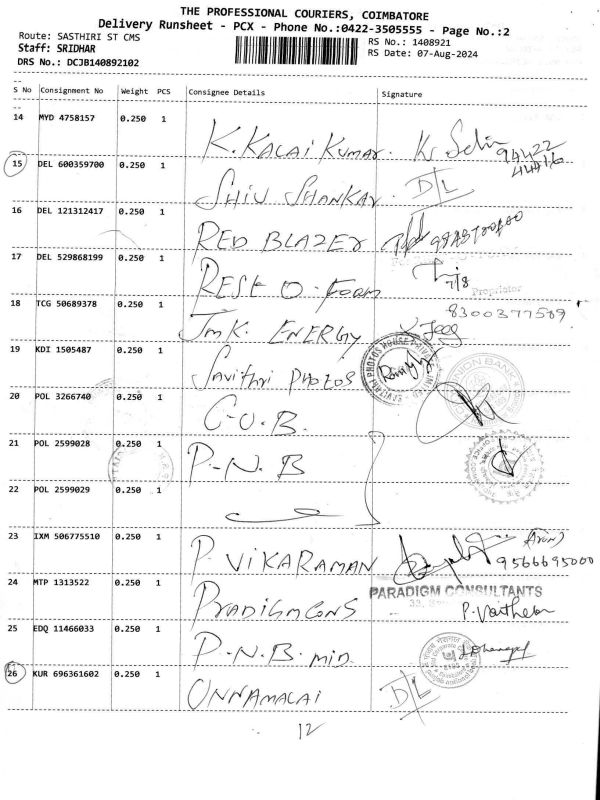 THE PROFESSIONAL COURIERS, COIMBATORE
Delivery Runsheet - PCX - Phone No.:0422-3505555 - Page No.:2
Route: SASTHIRI ST CMS
RS No.: 1408921
Staff: SRIDHAR
RS Date: 07-Aug-2024
DRS No.: DCJB140892102
S No Consignment No Weight PCS Consignee Details Signature
14 MYD 4758157 0.250 1
K. KALAI KUMAR
94422
44416
15 DEL 600359700 0.250 1
SHIV SHANKAR D/L
16 DEL 121312417 0.250 1
RED BLAZER
17 DEL 529868199 0.250 1
REST O. Foam 7/8
Proprietor
18 TCG 50689378 0.250 1
8300377589
JMK. ENERGY
19 KDI 1505487 0.250 1
Savithri PHOTOS
20 POL 3266740 0.250 1
C-U.B.
21 POL 2599028 0.250 1
P.N.B
22 POL 2599029 0.250 1
23 IXM 506775510 0.250 1
P. VIKARAMAN
9566695000
24 MTP 1313522 0.250 1
PARADIGM CONSULTANTS
PRADIGM CONS
25 EDQ 11466033 0.250 1
P.N.B. MID.
26 KUR 696361602 0.250 1
UNNAMALAI D/L
12